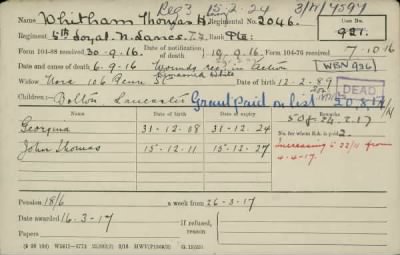 Reg3 15-2-24 3/MW/4594
Name Whitham Thomas H. Regimental No. 2046.
Case No.
921.
Regiment 4th Loyal N. Lancs. T.F. Rank Pte:
Form 104-88 received 30-9-16. Date of notification of death, 19-9-16. Form 104-76 received 7-10-16
Date and cause of death 6-9-16 Wounds rec'd in Action
Widow Nora 106 Penn St Date of birth 12-2-89
DEAD
Children:— Bolton Lancaster Grant paid on list
Date of birth Date of expiry Remarks
Georgina 31-12-08 31-12-24
No. for whom S.A. is paid 2.
John Thomas 15-12-11 15-12-27
Increasing to 22/11 from
4-4-17.
Pension 18/6 a week from 26-3-17
Date awarded 16-3-17 If refused,
reason
Papers